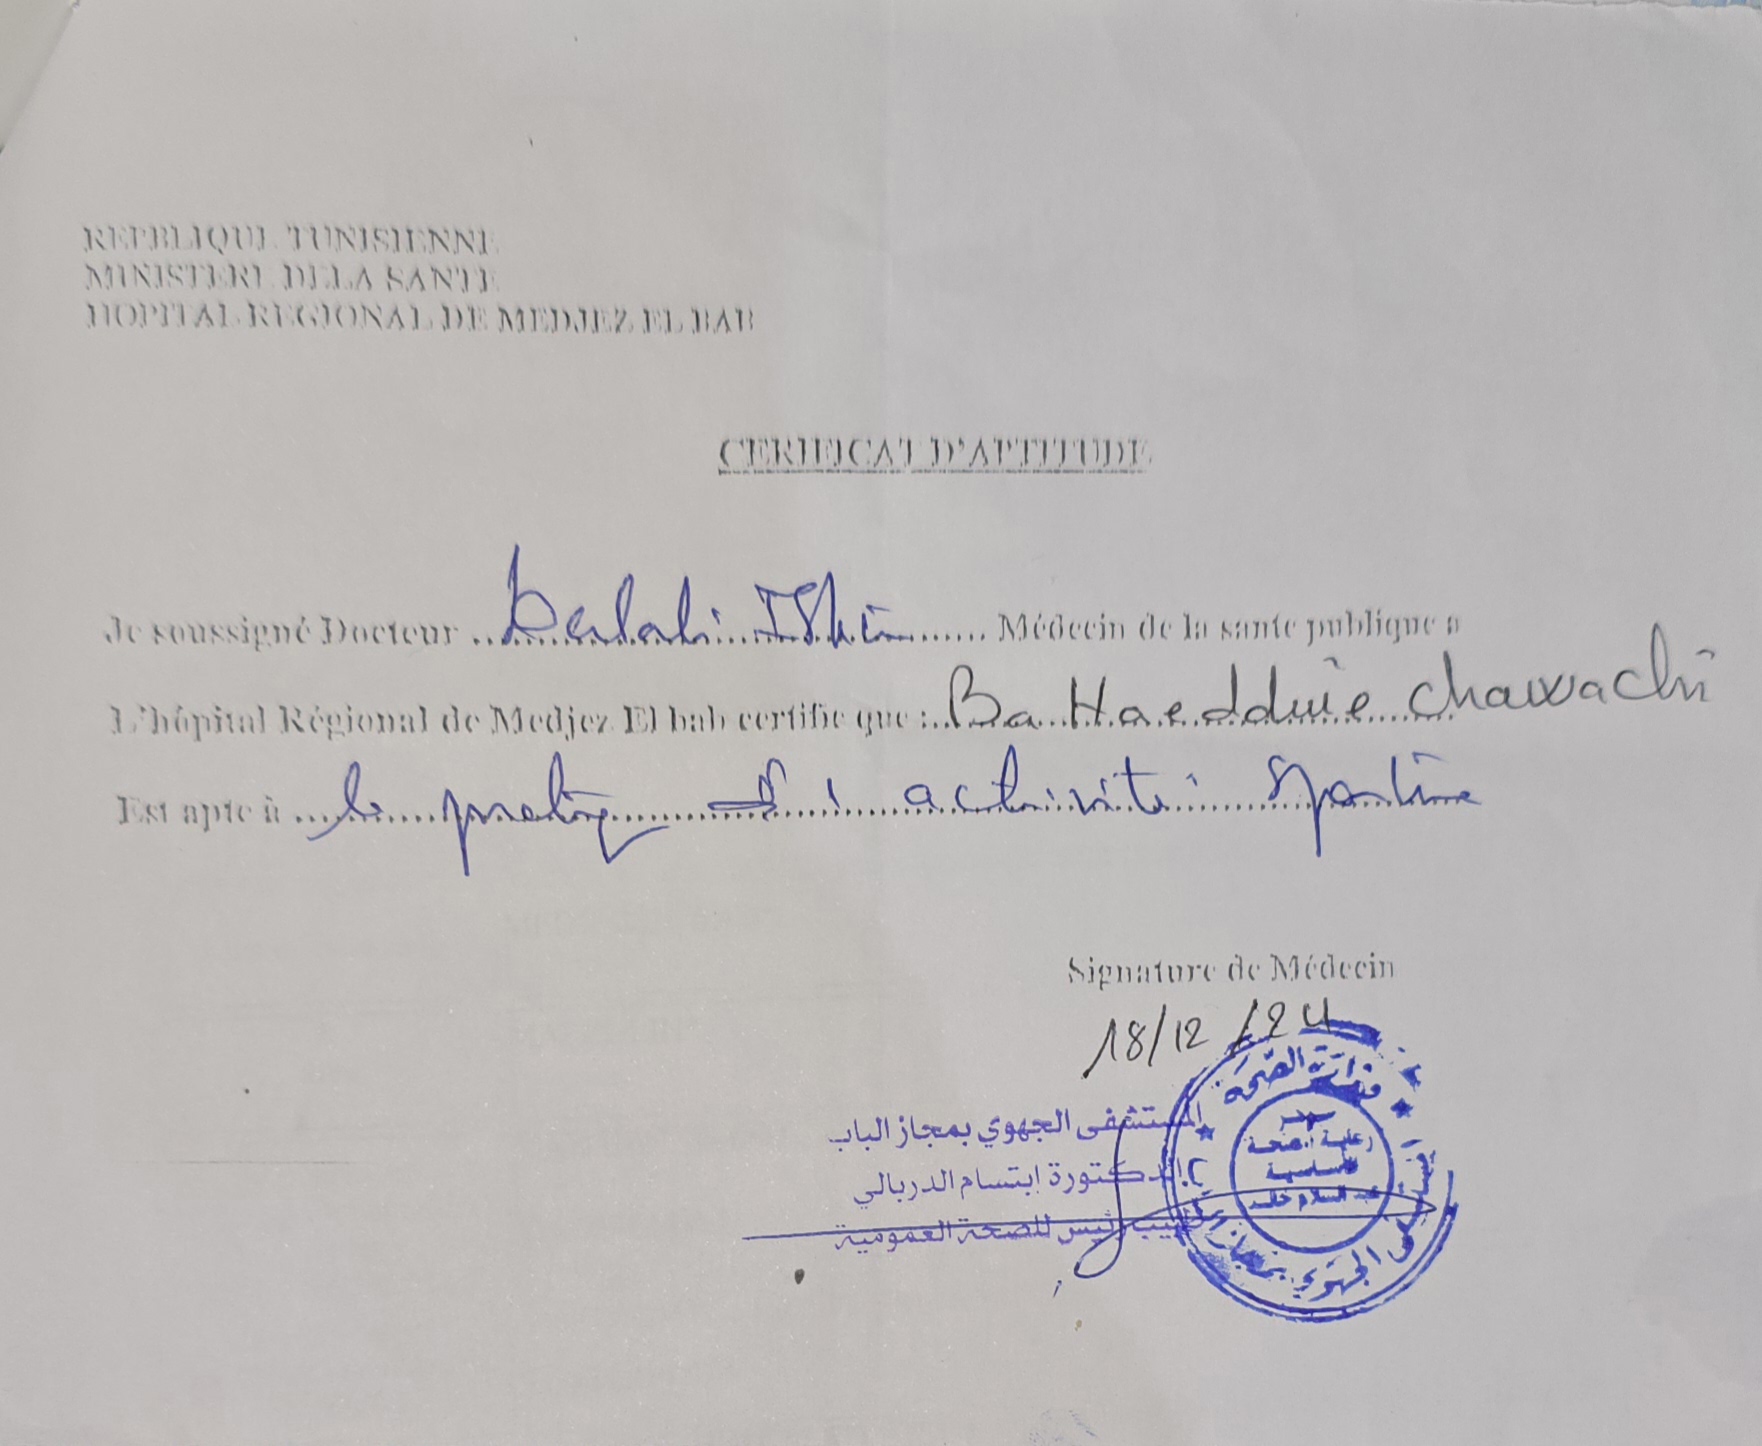 REPBLIQUE TUNISIENNE
MINISTERE DELA SANTE
HOPITAL REGIONAL DE MEDJEZ EL BAB
CERIFICAT D'APTITUDE
Je soussigné Docteur ........ Médecin de la sante publique a
L'hôpital Régional de Medjez El bab certifie que : Ba Haeddine chawachi
Est apte à la pratique d' activité sportive
Signature de Médecin
18/12/24
المستشفى الجهوي بمجاز الباب
الدكتورة إبتسام الدربالي
طبيب رئيس للصحة العمومية
وزارة الصحة
المستشفى الجهوي بمجاز الباب